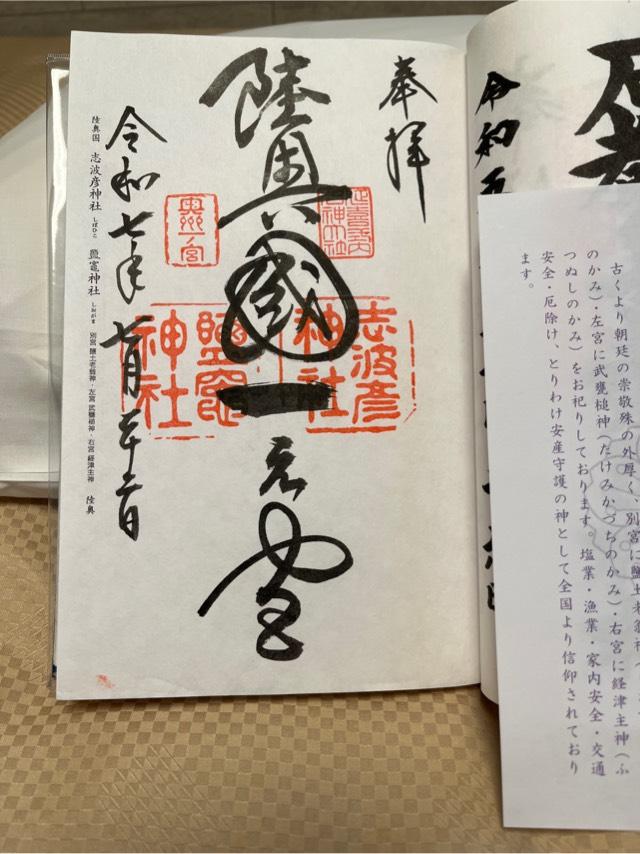 奉拝
陸奥國一之宮
志波彦
神社
鹽竈
神社
令和七年七月
陸奥国 志波彦神社 しばひこ 鹽竈神社 しおがま 別宮 鹽土老翁神・左宮 武甕槌神・右宮 経津主神 陸奥
令和五
古くより朝廷の崇敬殊の外厚く、別宮に鹽土老翁神
のかみ）・左宮に武甕槌神（たけみかづちのかみ）・右宮に経津主神（ふ
つぬしのかみ）をお祀りしております。塩業・漁業・家内安全・交通
安全・厄除け、とりわけ安産守護の神として全国より信仰されており
ます。